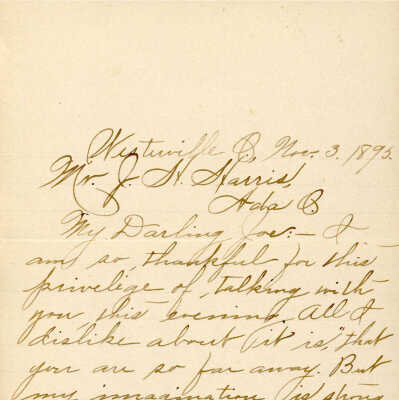 Westerville O., Nov. 3. 1895.
Mr. J. H. Harris,
Ada O
My Darling Joe:— I
am so, thankful for this
privilege of, talking with
you, this evening. All I
dislike about it is, that
you are so far away. But
my imagination is strong